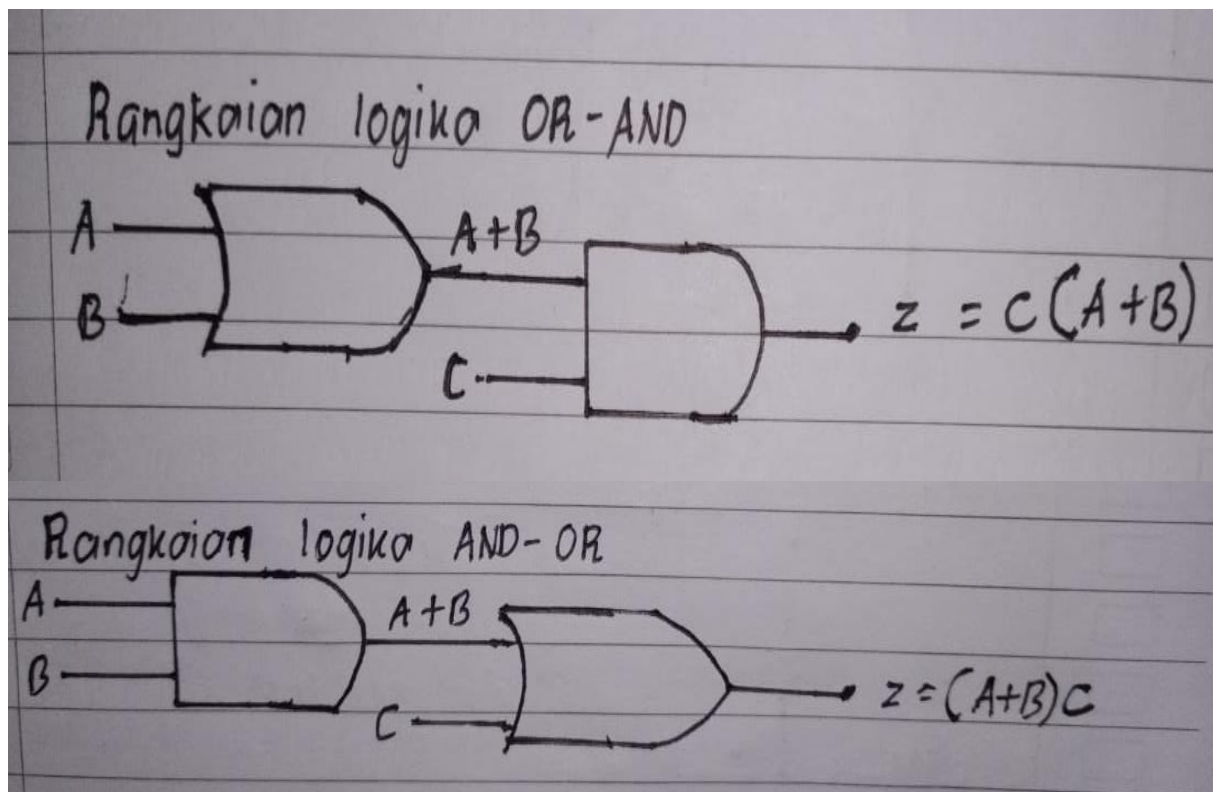 Rangkaian logika OR-AND
A
A+B
B
z = C(A+B)
C
Rangkaian logika AND-OR
A
A+B
B
C
z=(A+B)C